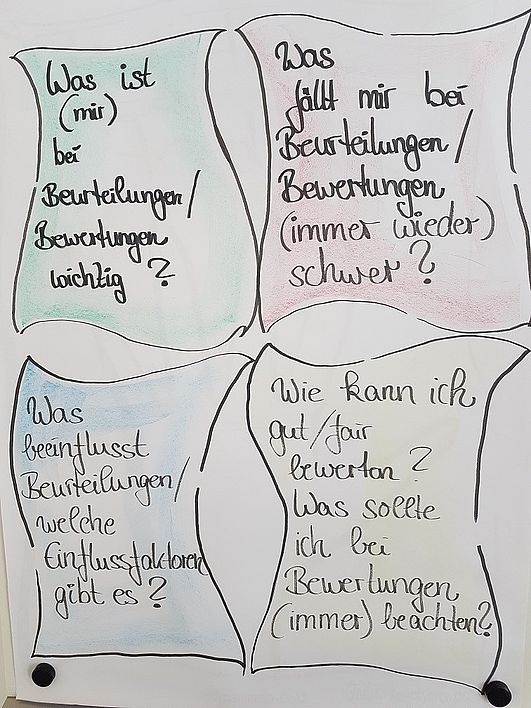 Was ist
(mir)
bei
Beurteilungen/
Bewertungen
wichtig ?
Was
fällt mir bei
Beurteilungen/
Bewertungen
(immer wieder)
schwer ?
Was
beeinflusst
Beurteilungen/
welche
Einflussfaktoren
gibt es ?
Wie kann ich
gut/fair
bewerten ?
Was sollte
ich bei
Bewertungen
(immer) beachten?